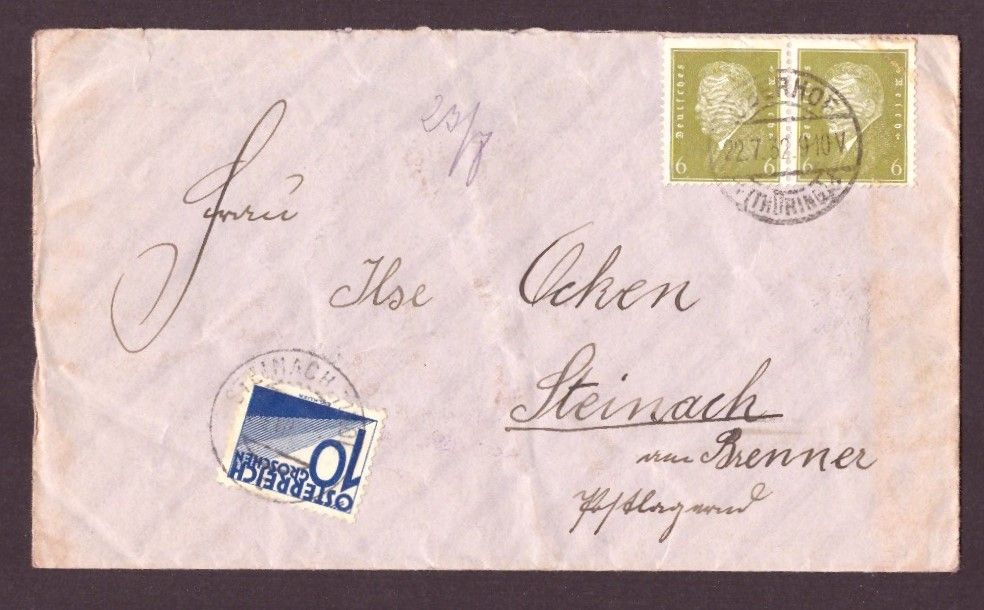 Deutsches Reich 6 6
Deutsches Reich 6 6
OBERHOF
22.7.32.9-10V
(THÜRING.)
23/7
Frau
Ilse Ocken
Steinach
am Brenner
Postlagernd
STEINACH
10
ÖSTERREICH
GROSCHEN